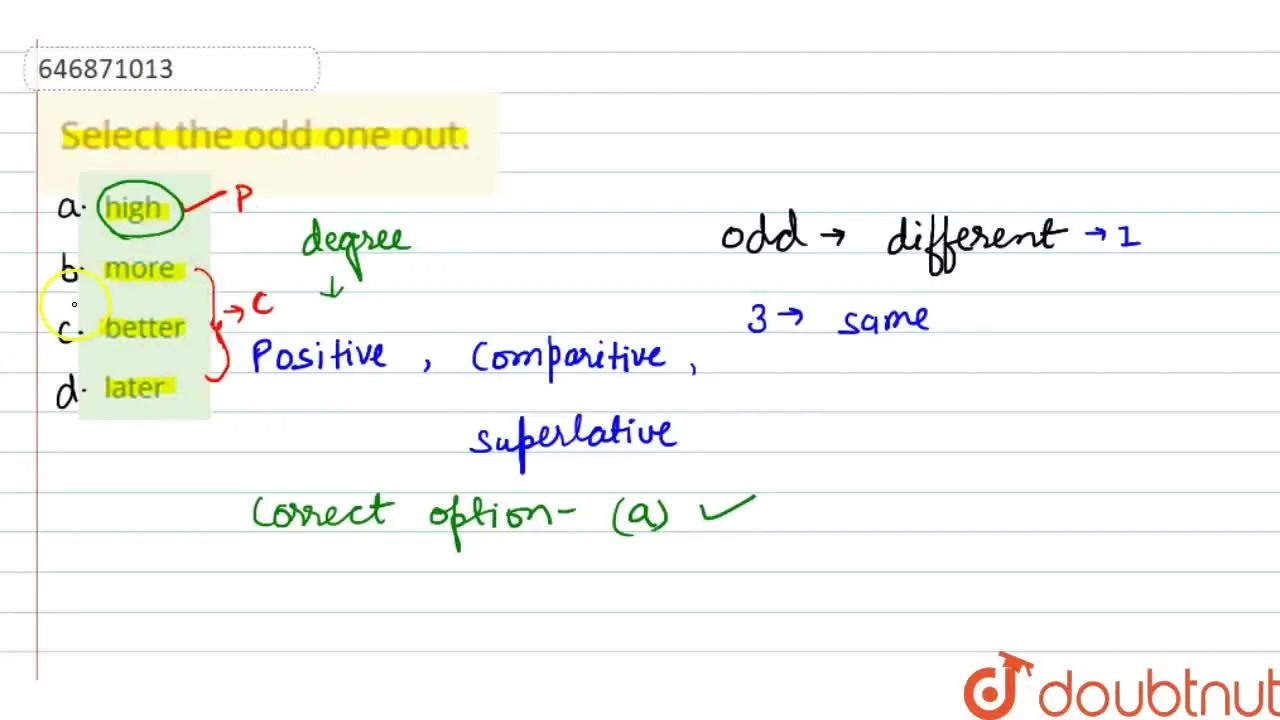 646871013
Select the odd one out.
a. high P
b. more
c. better
d. later
→ C
degree
↓
Positive, Comparitive,
superlative
Correct option- (a) ✓
odd → different → 1
3 → same
doubtnut